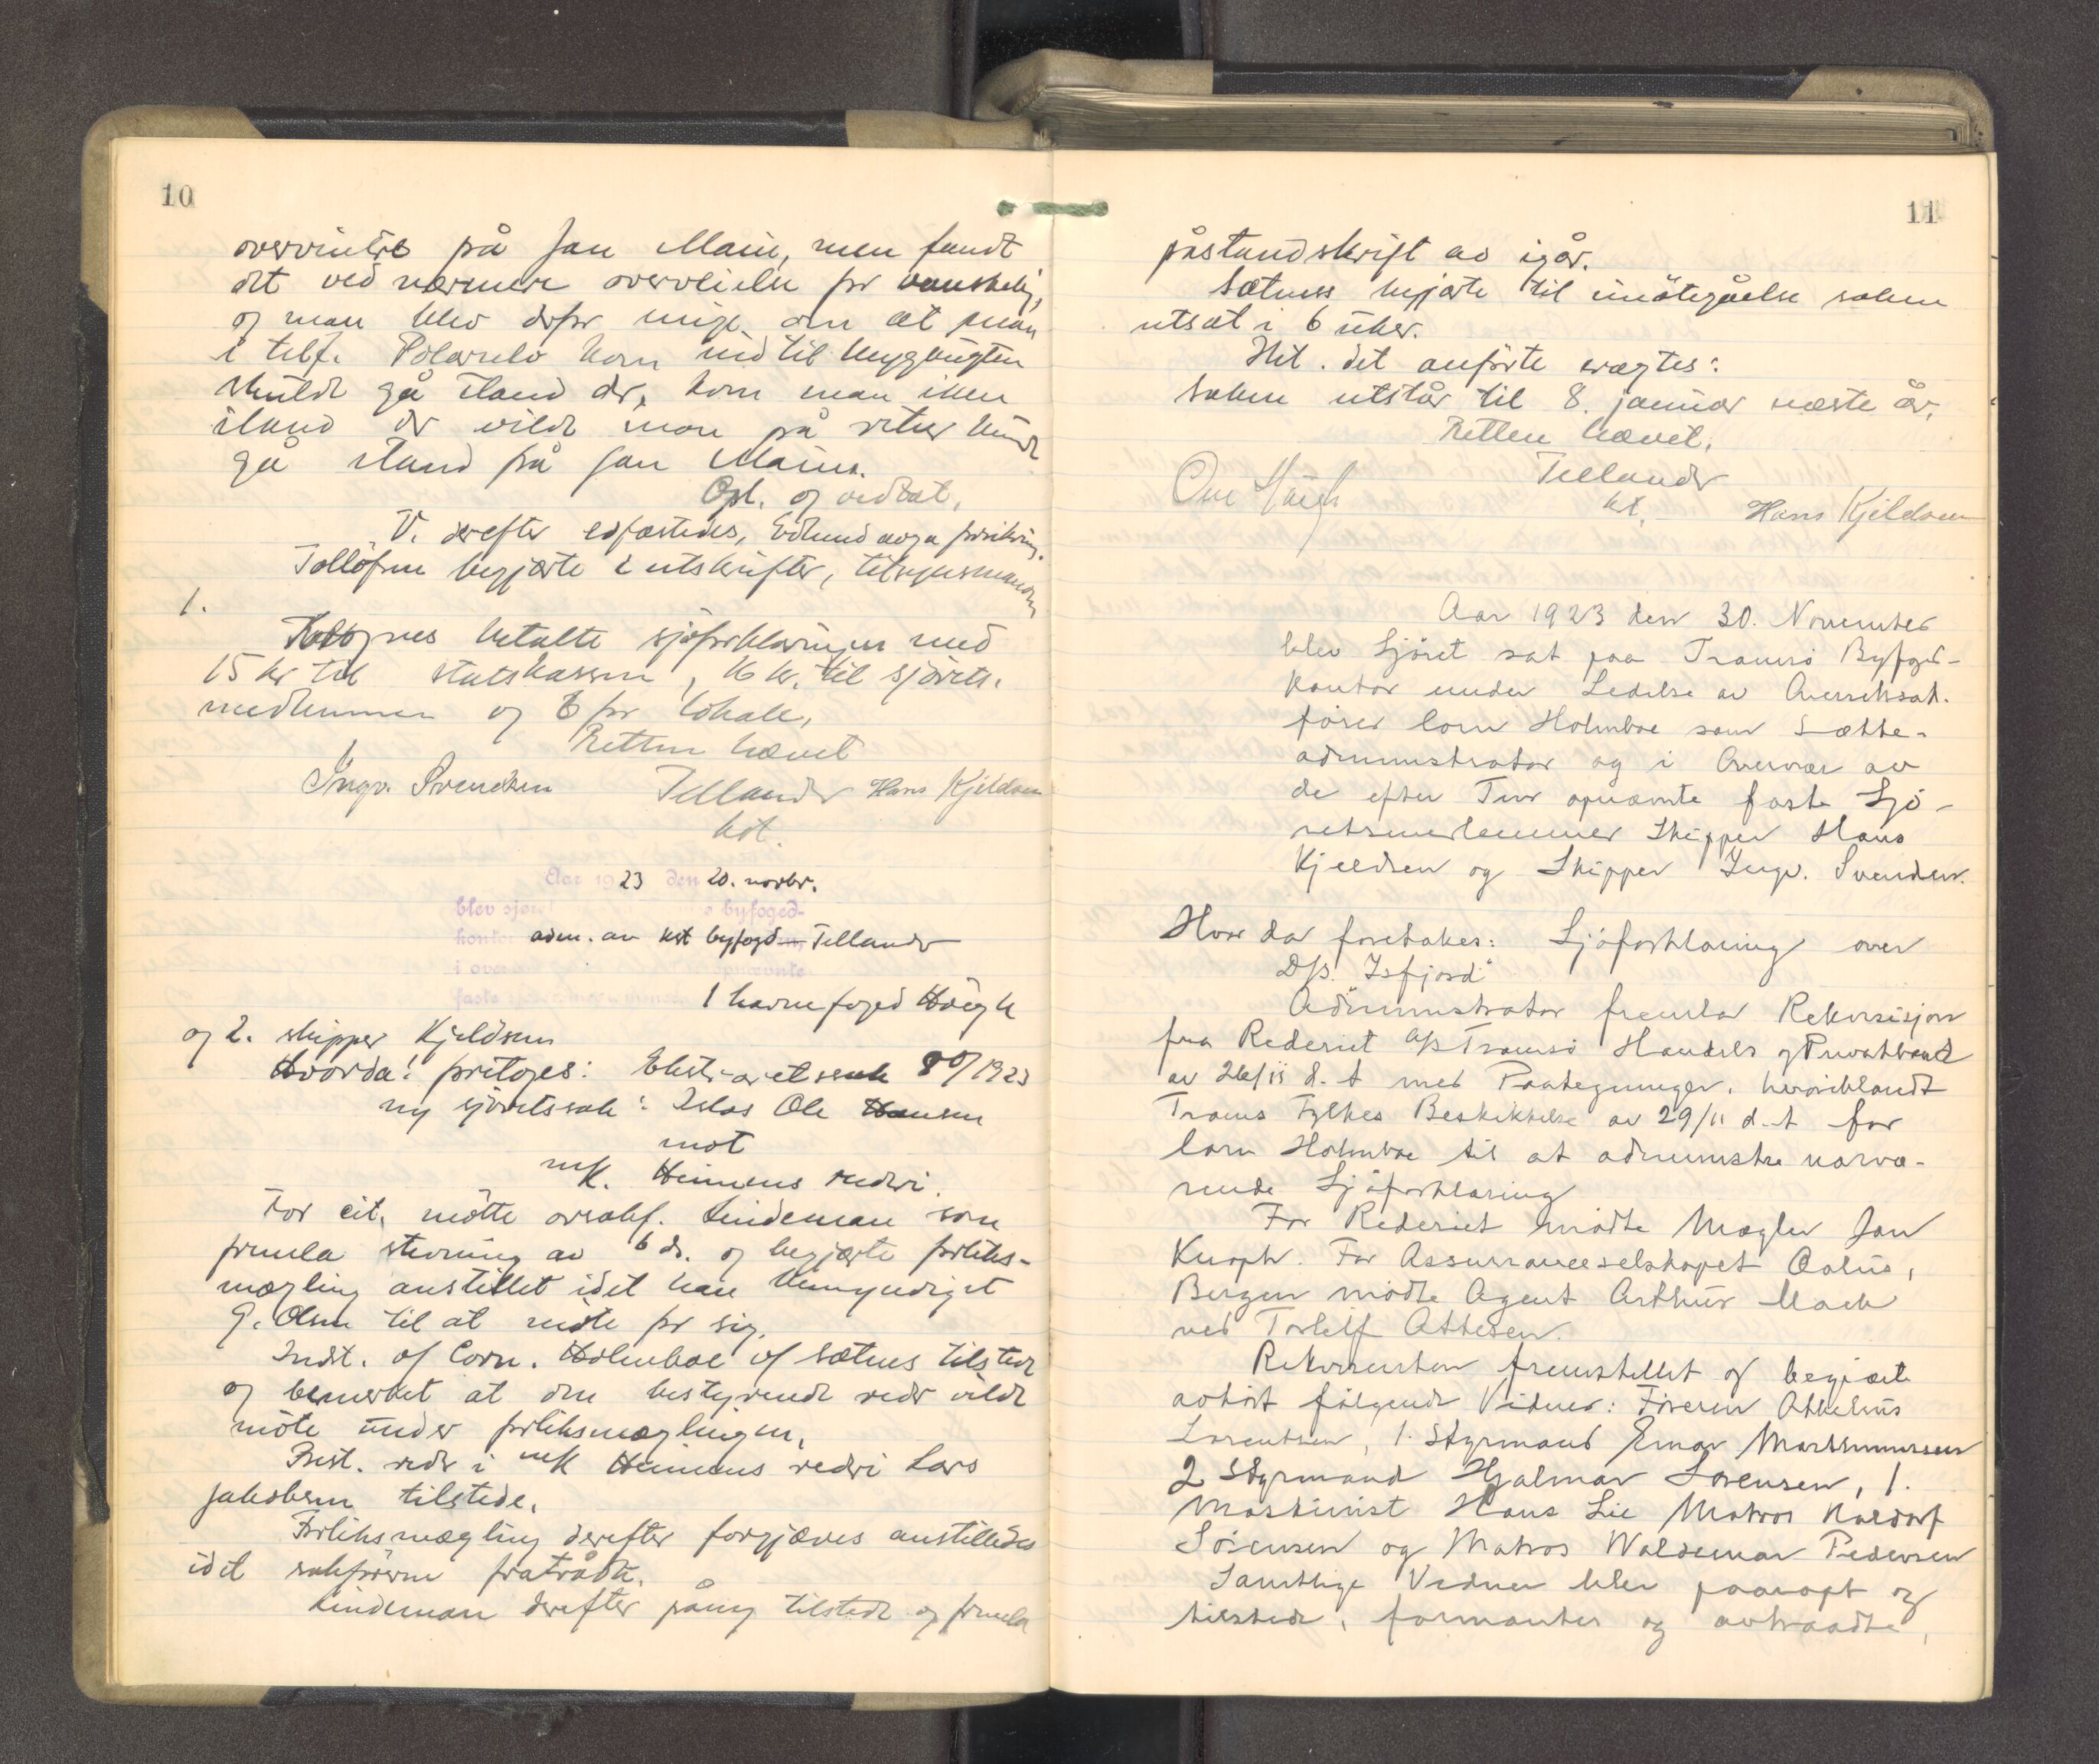 10
overvintre på Jan Main, men fandt
det ved nærmere overveielse for vanskelig,
og man blev derfor enige om at man
i tilf. Polarulv kom ind til Mygbugten
skulde gå iland der, kom man ikke
iland der vilde man på retur kunde
gå iland på Jan Main.
Opl. og vedtat.
V. derefter edfæstedes, Edlund avga forsikring.
Tollefsen begjærte 2 utskrifter, tilsynsmanden
1.
betalte sjøforklaringen med
15 kr til statskassen, 16 kr. til sjørets.
medlemmer og 6 for lokale,
Retten hævet
Ingv. Svendsen Tellander Hans Kjeldsen
kst.
Aar 1923 den 20. novbr.
blev sjøret byfoged-
kontor adm. av kst byfogd Tellander
i over opnævnte
faste 1 havnefoged Høegh
og 2. skipper Kjeldsen
Hvorda: foretoges: Ekstraretssak 80/1923
ny sjøretssak: Ole Hansen
mot
m/k. Heimens rederi.
For cit. møtte orsakf. Lindeman som
fremla stevning av 6 ds. og begjærte forliks-
mægling anstillet idet han bemyndiget
G. Olsen til at møte for sig.
Indst. of Corn. Holmboe of Sætnes tilstede
og bemerket at den bestyrende reder vilde
møte under forliksmæglingen,
Best. reder i m/k Heimens rederi Lars
Jakobsen tilstede.
Forliksmægling derefter forgjæves anstilledes
idet sakførerne fratrådte.
Lindeman derefter påny tilstede og fremla
11
påstandskrift av igår.
Sætness begjærte til imøtegåelse saken
utsat i 6 uker.
Ht. det anførte eragtes:
Saken utstår til 8. januar næste år.
Retten hævet.
Tellander
kst. Hans Kjeldsen
Aar 1923 den 30. November
blev Sjöret sat paa Tromsö Byfoged-
kontor under Ledelse av Overretssak-
förer Corn Holmboe som Sætte-
administrator og i Overvær av
de efter Tur opnævnte faste Sjö-
retsmedlemmer Skipper Hans
Kjeldsen og Skipper Ingv. Svendsen.
Hvor da foretakes: Sjöforklaring over
D/S. "Isfjord"
Administrator fremla Rekvisisjon
fra Rederiet A/S Tromsö Handels og Privatbank
av 26/11 d. A med Paategninger, heriblandt
Troms Fylkes Beskikkelse av 29/11 d. A for
Corn Holmboe til at administre nærvæ-
rende Sjöforklaring
For Rederiet mödte Mægler Jan
Knoph. For Assuranceselskapet Æolus,
Bergen mödte Agent Arthur Mack
ved Torleif Attesen.
Rekvirenten fremstillet og begjært
avhört fölgende Vidner: Föreren
Lorentsen, 1. Styrmand Einar
2 Styrmand Hjalmar Sörensen, 1.
Maskinist Hans Lie Matros
Sörensen og Matros Waldemar Pedersen
Samtlige Vidner blev paaropt og
tilstede, formantes og avtraadte.